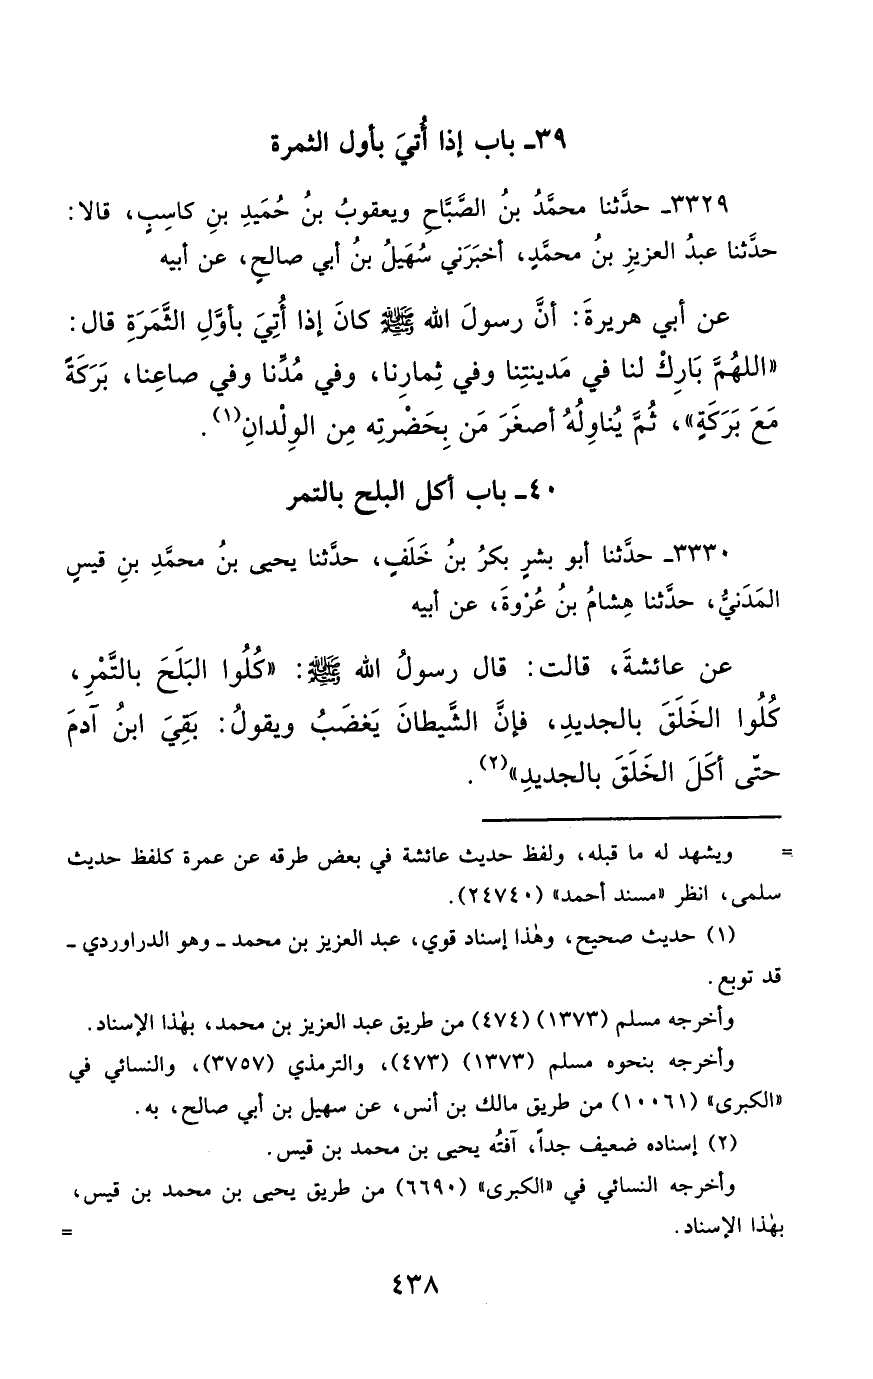 ٣٩ـ باب إذا أُتيَ بأول الثمرة
٣٣٢٩ـ حدَّثنا محمَّدُ بنُ الصَّبَّاحِ ويعقوبُ بنُ حُمَيدِ بنِ كاسِبٍ، قالا:
حدَّثنا عبدُ العزيزِ بنُ محمَّدٍ، أخبَرَني سُهَيلُ بنُ أبي صالحٍ، عن أبيه
عن أبي هريرةَ: أنَّ رسولَ الله ﷺ كانَ إذا أُتِيَ بأوَّلِ الثَّمَرَةِ قال:
«اللهُمَّ بَارِكْ لنا في مَدينتِنا وفي ثِمارِنا، وفي مُدِّنا وفي صاعِنا، بَرَكَةً
مَعَ بَرَكَةٍ»، ثُمَّ يُناوِلُهُ أصغَرَ مَن بِحَضْرتِه مِن الوِلْدانِ(١).
٤٠ـ باب أكل البلح بالتمر
٣٣٣٠ـ حدَّثنا أبو بشرٍ بكرُ بنُ خَلَفٍ، حدَّثنا يحيى بنُ محمَّدِ بنِ قيسٍ
المَدَنيُّ، حدَّثنا هِشامُ بنُ عُرْوةَ، عن أبيه
عن عائشةَ، قالت: قال رسولُ الله ﷺ: «كُلُوا البَلَحَ بالتَّمْرِ،
كُلُوا الخَلَقَ بالجديدِ، فإنَّ الشَّيطانَ يَغضَبُ ويقولُ: بَقِيَ ابنُ آدمَ
حتّى أكَلَ الخَلَقَ بالجديدِ»(٢).
= ويشهد له ما قبله، ولفظ حديث عائشة في بعض طرقه عن عمرة كلفظ حديث
سلمى، انظر «مسند أحمد» (٢٤٧٤٠).
(١) حديث صحيح، وهٰذا إسناد قوي، عبد العزيز بن محمد ـ وهو الدراوردي ـ
قد توبع.
وأخرجه مسلم (١٣٧٣) (٤٧٤) من طريق عبد العزيز بن محمد، بهٰذا الإسناد.
وأخرجه بنحوه مسلم (١٣٧٣) (٤٧٣)، والترمذي (٣٧٥٧)، والنسائي في
«الكبرى» (١٠٠٦١) من طريق مالك بن أنس، عن سهيل بن أبي صالح، به.
(٢) إسناده ضعيف جداً، آفتُه يحيى بن محمد بن قيس.
وأخرجه النسائي في «الكبرى» (٦٦٩٠) من طريق يحيى بن محمد بن قيس،
بهٰذا الإسناد. =
٤٣٨